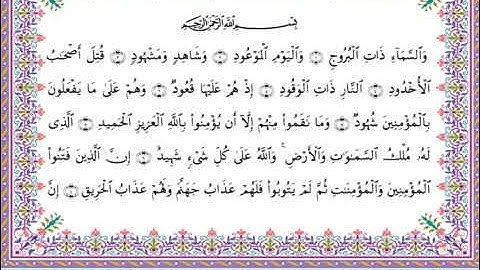 بِسْمِ ٱللَّهِ ٱلرَّحْمَٰنِ ٱلرَّحِيمِ
وَٱلسَّمَآءِ ذَاتِ ٱلْبُرُوجِ ۝ وَٱلْيَوْمِ ٱلْمَوْعُودِ ۝ وَشَاهِدٍ وَمَشْهُودٍ ۝ قُتِلَ أَصْحَٰبُ
ٱلْأُخْدُودِ ۝ ٱلنَّارِ ذَاتِ ٱلْوَقُودِ ۝ إِذْ هُمْ عَلَيْهَا قُعُودٌ ۝ وَهُمْ عَلَىٰ مَا يَفْعَلُونَ
بِٱلْمُؤْمِنِينَ شُهُودٌ ۝ وَمَا نَقَمُوا۟ مِنْهُمْ إِلَّآ أَن يُؤْمِنُوا۟ بِٱللَّهِ ٱلْعَزِيزِ ٱلْحَمِيدِ ۝ ٱلَّذِى
لَهُۥ مُلْكُ ٱلسَّمَٰوَٰتِ وَٱلْأَرْضِ ۚ وَٱللَّهُ عَلَىٰ كُلِّ شَىْءٍ شَهِيدٌ ۝ إِنَّ ٱلَّذِينَ فَتَنُوا۟
ٱلْمُؤْمِنِينَ وَٱلْمُؤْمِنَٰتِ ثُمَّ لَمْ يَتُوبُوا۟ فَلَهُمْ عَذَابُ جَهَنَّمَ وَلَهُمْ عَذَابُ ٱلْحَرِيقِ ۝ إِنَّ